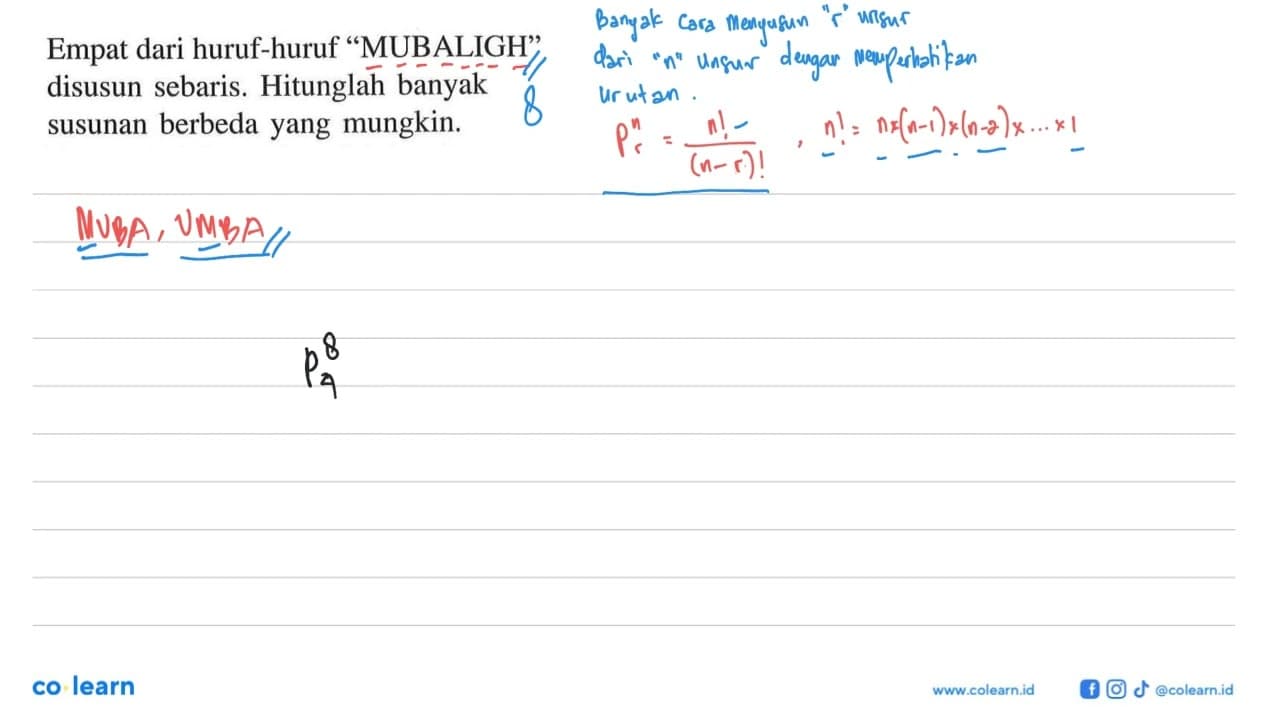 Empat dari huruf-huruf “MUBALIGH”
disusun sebaris. Hitunglah banyak
susunan berbeda yang mungkin.
8
Banyak Cara Menyusun "r" unsur
dari "n" unsur dengan memperhatikan
urutan.
P^n_r = n!/(n-r)! , n! = n×(n-1)×(n-2)×...×1
MUBA, UMBA
P^8_4
co learn
www.colearn.id
@colearn.id